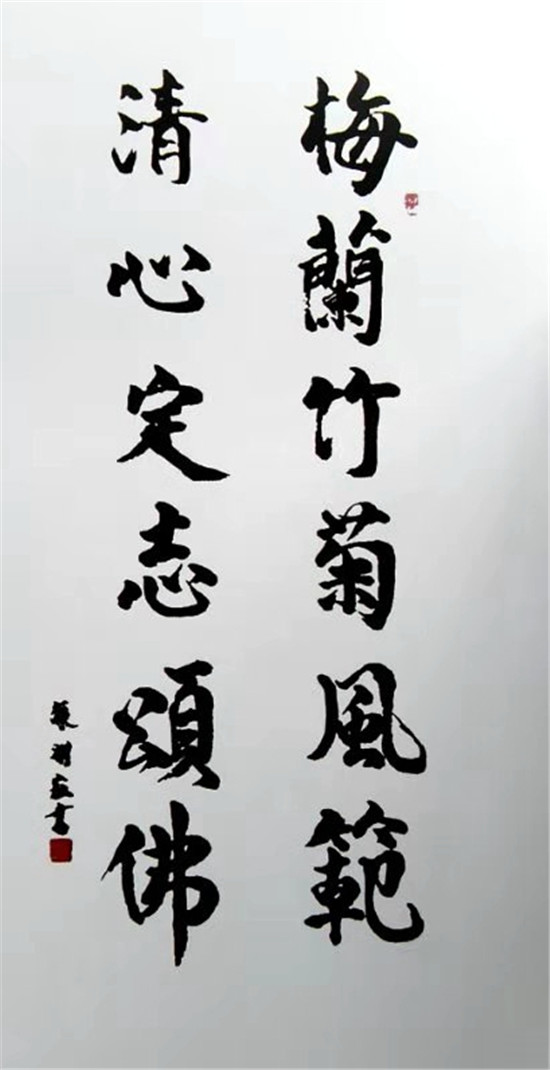 梅蘭竹菊風範
清心定志頌佛